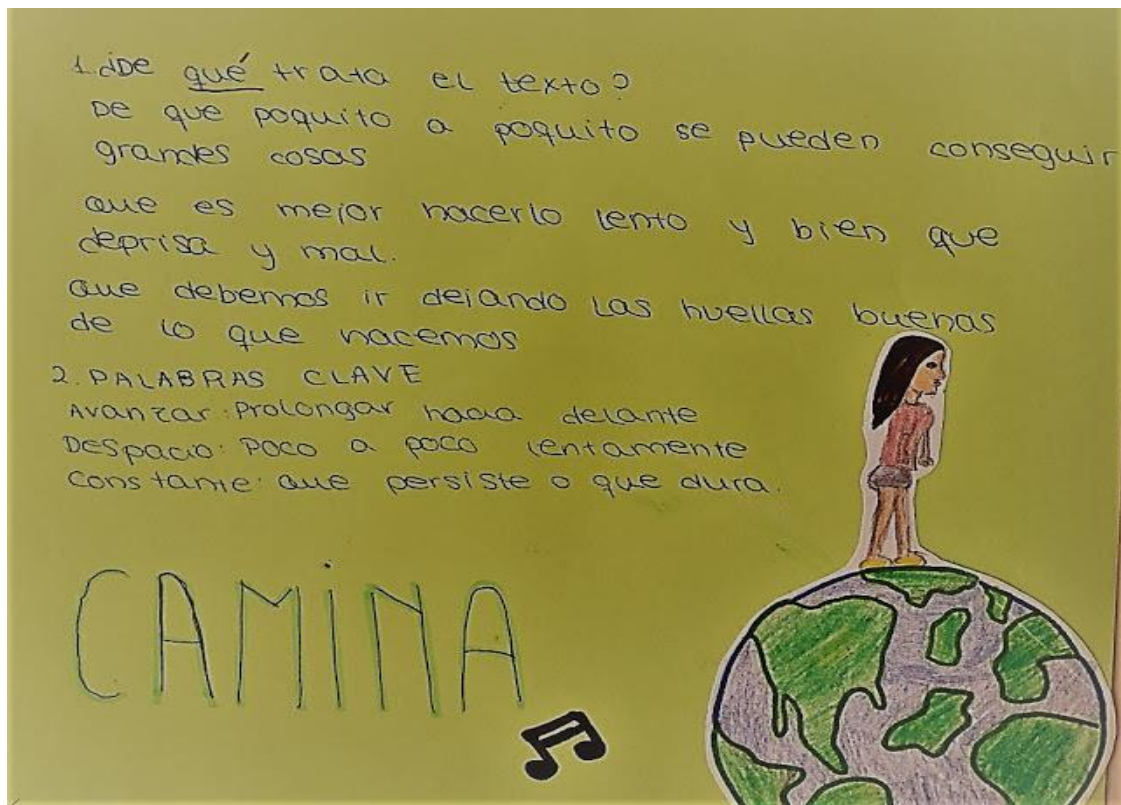 1. ¿De qué trata el texto?
De que poquito a poquito se pueden conseguir
grandes cosas
que es mejor hacerlo lento y bien que
deprisa y mal.
que debemos ir dejando las huellas buenas
de lo que hacemos
2. PALABRAS CLAVE
Avanzar: Prolongar hacia delante
Despacio: Poco a poco lentamente
Constante: que persiste o que dura.
CAMINA